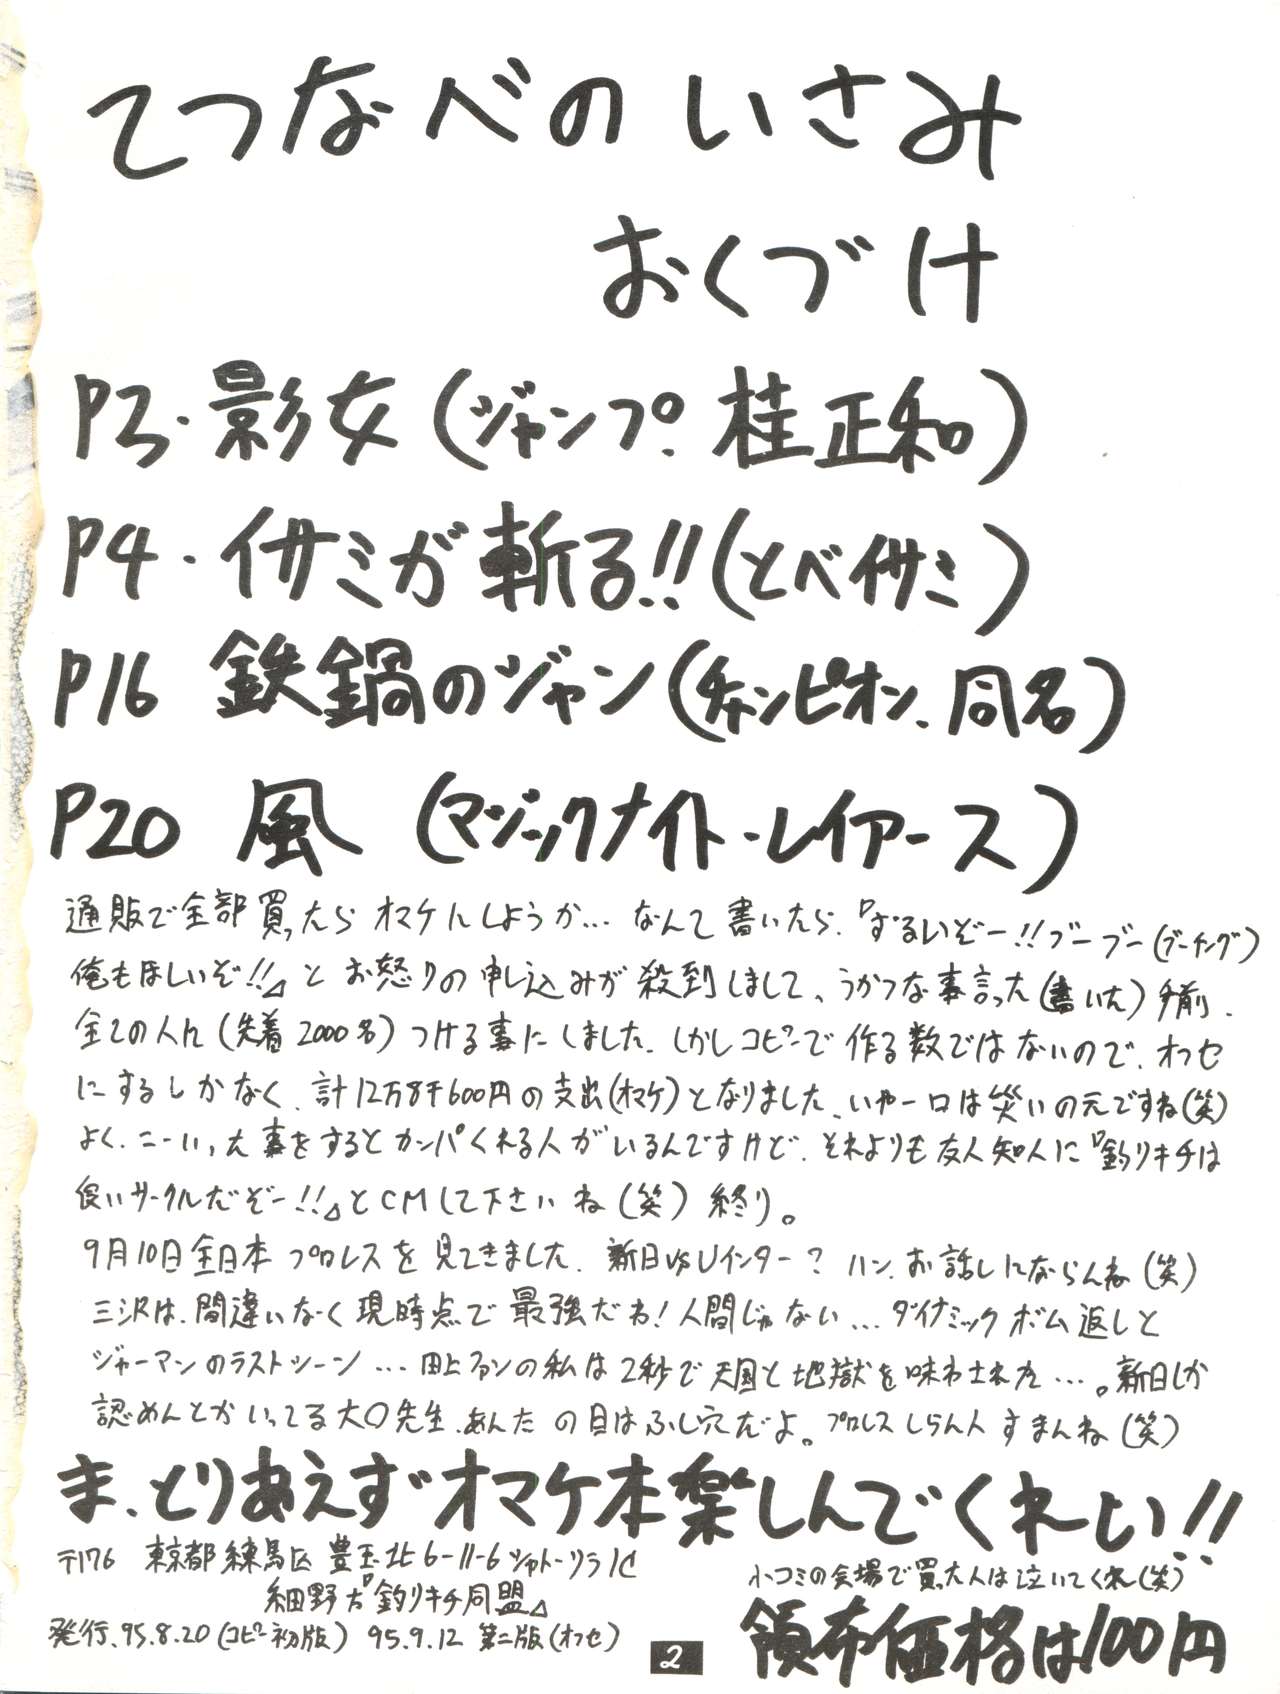 てつなべのいさみ
おくづけ
P3・影女(ジャンプ.桂正和)
P4・イサミが斬る!!(とべイサミ)
P16 鉄鍋のジャン(チャンピオン、同名)
P20 風(マジックナイト・レイアース)
通販で全部買ったらオマケにしようか…なんて書いたら、『ずるいぞー!!ブーブー(ブーイング)
俺もほしいぞ!!』とお怒りの申し込みが殺到しまして、うかつな事言った(書いた)手前、
全ての人に(先着2000名)つける事にしました。しかしコピーで作る数ではないので、オフセ
にするしかなく、計12万8千600円の支出(オマケ)となりました、いやー口は災いの元ですね(笑)
よく、こーいった事をするとカンパくれる人がいるんですけど、それよりも友人知人に『釣りキチは
良いサークルだぞー!!』とCMして下さいね(笑)終り。
9月10日全日本プロレスを見てきました、新日vsUインター?ハン、お話しにならんね(笑)
三沢は、間違いなく現時点で最強だね!人間じゃない…ダイナミックボム返しと
ジャーマンのラストシーン…田上ファンの私は2秒で天国と地獄を味わされた…。新日しか
認めんとかいってる大〇先生、あんたの目はふし穴だよ。プロレスしらん人すまんね(笑)
ま、とりあえずオマケ本楽しんでくれーい!!
〒176 東京都練馬区豊玉北6-11-6シャトーソラ1C
細野方『釣りキチ同盟』
小コミの会場で買った人は泣いてくれ(笑)
発行、95.8.20(コピー初版) 95.9.12 第二版(オフセ)
領布価格は100円
2